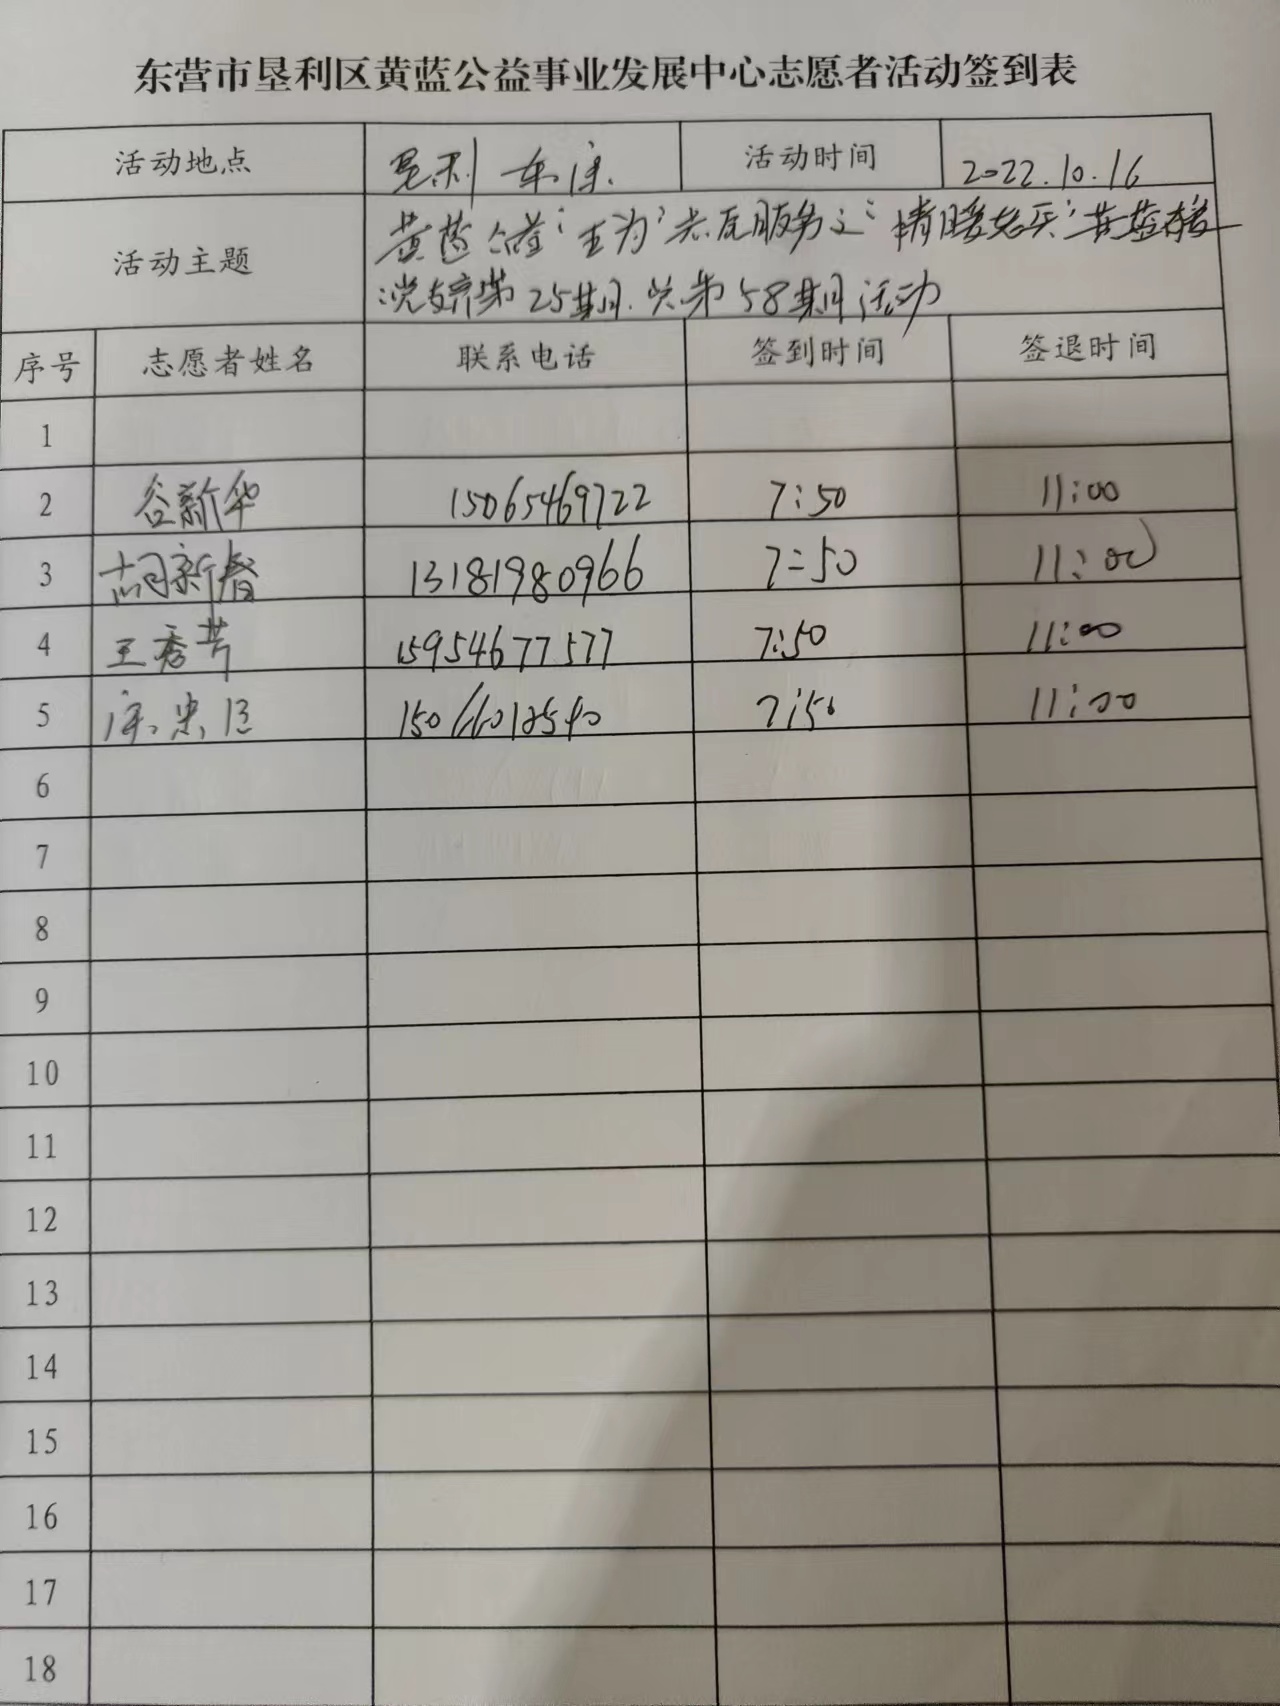 东营市垦利区黄蓝公益事业发展中心志愿者活动签到表
活动地点 垦利 活动时间 2022.10.16
黄蓝公益 志愿服务之 情暖老兵 黄蓝
活动主题
第25期 共第58期活动
序号 志愿者姓名 联系电话 签到时间 签退时间
1
2 谷新华 15065469722 7:50 11:00
3 胡新春 13181980966 7:50 11:00
4 王秀芳 15954677577 7:50 11:00
5 7:50 11:00
6
7
8
9
10
11
12
13
14
15
16
17
18